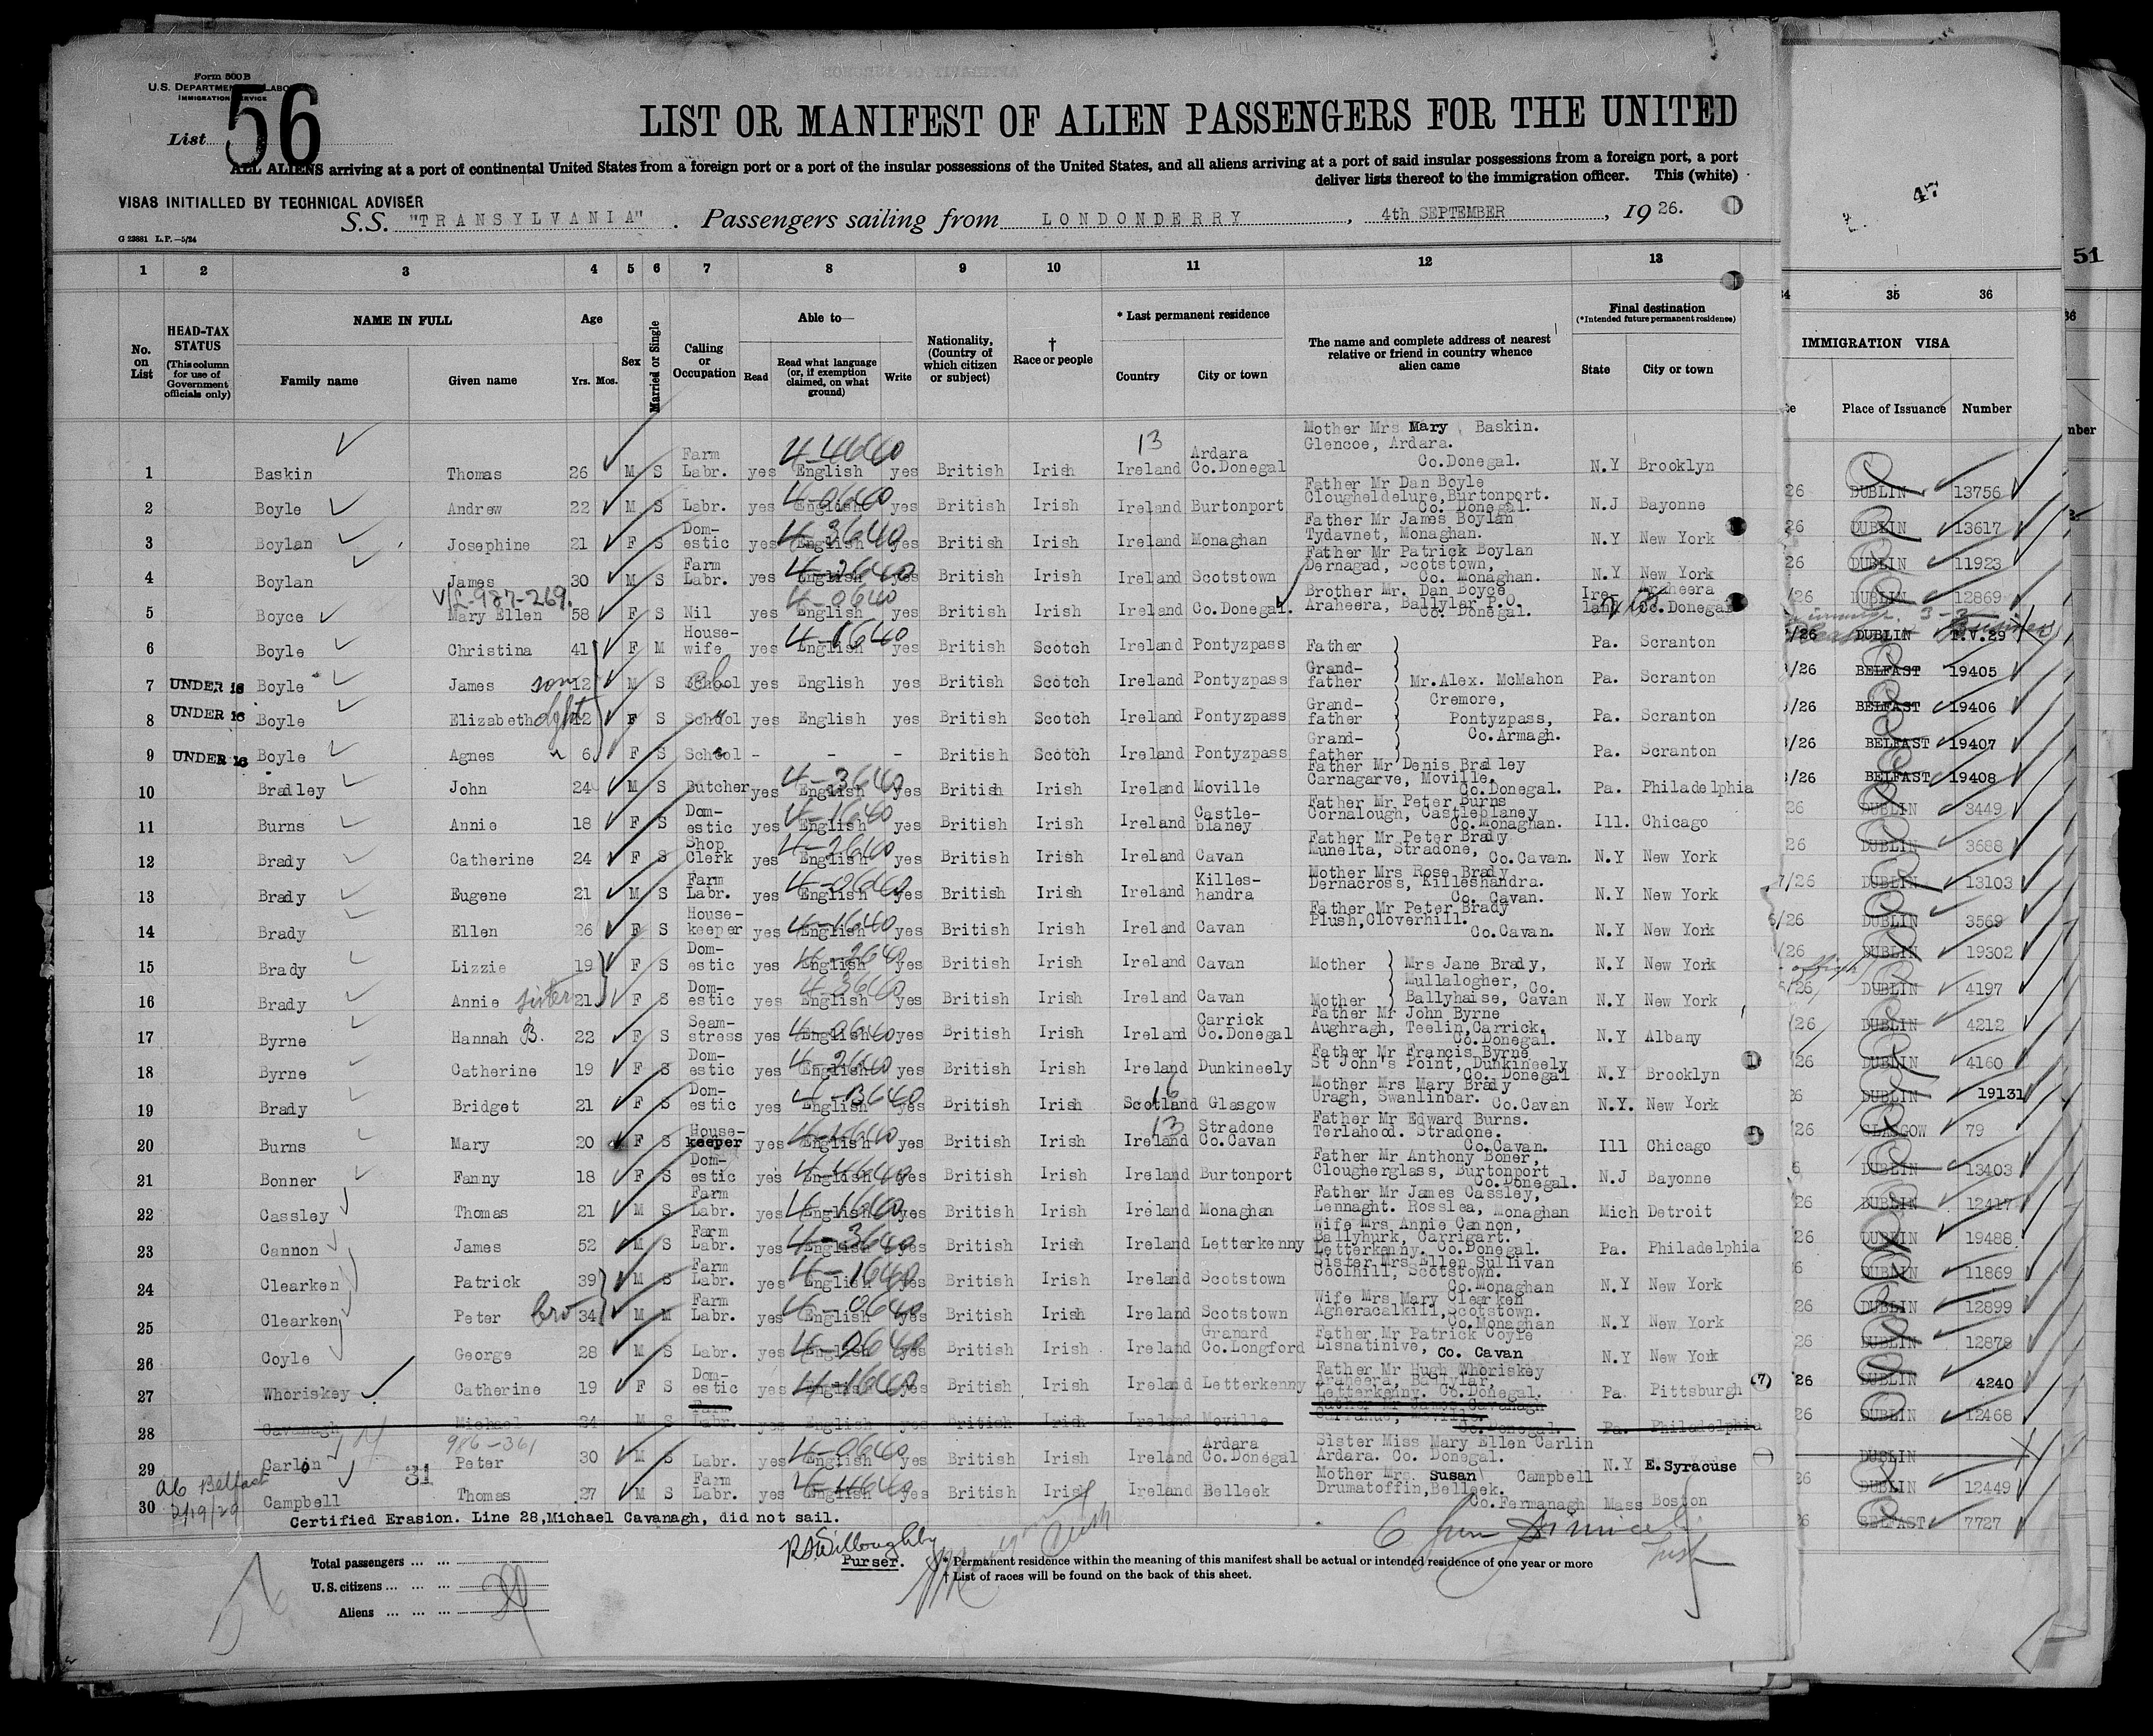 Form 500 B
U.S. DEPARTMENT LABO
IMMIGRATION SERVICE
List 56
LIST OR MANIFEST OF ALIEN PASSENGERS FOR THE UNITED
ALL ALIENS arriving at a port of continental United States from a foreign port or a port of the insular possessions of the United States, and all aliens arriving at a port of said insular possessions from a foreign port, a port
deliver lists thereof to the immigration officer. This (white)
VISAS INITIALLED BY TECHNICAL ADVISER
S.S. "TRANSYLVANIA". Passengers sailing from LONDONDERRY, 4th SEPTEMBER, 1926.
G 23881 L.P.—5/24
47
51
1 2 3 4 5 6 7 8 9 10 11 12 13 34 35 36
No. on List
HEAD-TAX STATUS (This column for use of Government officials only)
NAME IN FULL
Family name Given name
Age Yrs. Mos.
Sex
Married or Single
Calling or Occupation
Able to— Read Read what language (or, if exemption claimed, on what ground) Write
Nationality, (Country of which citizen or subject)
† Race or people
* Last permanent residence Country City or town
The name and complete address of nearest relative or friend in country whence alien came
Final destination (*Intended future permanent residence) State City or town
IMMIGRATION VISA
Place of Issuance Number
1 Baskin Thomas 26 M S Farm Labr. yes English yes British Irish Ireland Ardara Co.Donegal Mother Mrs Mary Baskin. Glencoe, Ardara. Co.Donegal. N.Y Brooklyn
2 Boyle Andrew 22 M S Labr. yes English yes British Irish Ireland Burtonport Father Mr Dan Boyle Clougheldelure,Burtonport. Co. Donegal. N.J Bayonne
3 Boylan Josephine 21 F S Dom-estic yes English yes British Irish Ireland Monaghan Father Mr James Boylan Tydavnet, Monaghan. N.Y New York
4 Boylan James 30 M S Farm Labr. yes English yes British Irish Ireland Scotstown Father Mr Patrick Boylan Dernagad, Scotstown, Co. Monaghan. N.Y New York
5 Boyce Mary Ellen 58 F S Nil yes English yes British Irish Ireland Co.Donegal. Brother Mr. Dan Boyce Araheera, Ballylar P.O. Co. Donegal. Ire-land Araheera Co.Donegal
6 Boyle Christina 41 F M House-wife yes English yes British Scotch Ireland Pontyzpass Father Pa. Scranton
7 UNDER 16 Boyle James son 12 M S School yes English yes British Scotch Ireland Pontyzpass Grand-father Mr.Alex. McMahon Pa. Scranton
8 UNDER 16 Boyle Elizabeth dght 12 F S School yes English yes British Scotch Ireland Pontyzpass Grand-father Cremore, Pontyzpass, Pa. Scranton
9 UNDER 16 Boyle Agnes " 6 F S School - - - British Scotch Ireland Pontyzpass Grand-father Co.Armagh. Pa. Scranton
10 Bradley John 24 M S Butcher yes English yes British Irish Ireland Moville Father Mr Denis Bradley Carnagarve, Moville. Co.Donegal. Pa. Philadelphia
11 Burns Annie 18 F S Dom-estic yes English yes British Irish Ireland Castle-blaney Father Mr Peter Burns Cornalough, Castleblaney Co.Monaghan. Ill. Chicago
12 Brady Catherine 24 F S Shop Clerk yes English yes British Irish Ireland Cavan Father Mr Peter Brady Munelta, Stradone, Co.Cavan. N.Y New York
13 Brady Eugene 21 M S Farm Labr. yes English yes British Irish Ireland Killes-handra Mother Mrs Rose Brady Dernacross, Killeshandra. Co. Cavan. N.Y New York
14 Brady Ellen 26 F S House-keeper yes English yes British Irish Ireland Cavan Father Mr Peter Brady Plush,Cloverhill. Co.Cavan. N.Y New York
15 Brady Lizzie 19 F S Dom-estic yes English yes British Irish Ireland Cavan Mother Mrs Jane Brady, N.Y New York
16 Brady Annie sister 21 F S Dom-estic yes English yes British Irish Ireland Cavan Mother Mullalogher, Co. Ballyhaise, Cavan N.Y New York
17 Byrne Hannah B. 22 F S Seam-stress yes English yes British Irish Ireland Carrick Co.Donegal Father Mr John Byrne Aughragh, Teelin,Carrick. Co.Donegal. N.Y Albany
18 Byrne Catherine 19 F S Dom-estic yes English yes British Irish Ireland Dunkineely Father Mr Francis Byrne St John's Point, Dunkineely Co. Donegal N.Y Brooklyn
19 Brady Bridget 21 F S Dom-estic yes English yes British Irish Scotland Glasgow Mother Mrs Mary Brady Uragh, Swanlinbar. Co.Cavan N.Y. New York
20 Burns Mary 20 F S House-keeper yes English yes British Irish Ireland Stradone Co.Cavan Father Mr Edward Burns. Terlahood. Stradone. Co.Cavan. Ill Chicago
21 Bonner Fanny 18 F S Dom-estic yes English yes British Irish Ireland Burtonport Father Mr Anthony Boner, Clougherglass, Burtonport Co.Donegal. N.J Bayonne
22 Cassley Thomas 21 M S Farm Labr. yes English yes British Irish Ireland Monaghan Father Mr James Cassley, Lennaght. Rosslea, Monaghan Mich Detroit
23 Cannon James 52 M S Farm Labr. yes English yes British Irish Ireland Letterkenny Wife Mrs Annie Cannon, Ballyhurk, Carrigart. Letterkenny. Co.Donegal. Pa. Philadelphia
24 Clearken Patrick 39 M S Farm Labr. yes English yes British Irish Ireland Scotstown Sister Mrs Ellen Sullivan Coolhill, Scotstown. Co.Monaghan N.Y New York
25 Clearken Peter bro 34 M M Farm Labr. yes English yes British Irish Ireland Scotstown Wife Mrs Mary Clearken Agheracalkill,Scotstown. Co.Monaghan N.Y New York
26 Coyle George 28 M S Labr. yes English yes British Irish Ireland Granard Co.Longford Father Mr Patrick Coyle Lisnatinive, Co. Cavan N.Y New York
27 Whoriskey Catherine 19 F S Dom-estic yes English yes British Irish Ireland Letterkenny Father Mr Hugh Whoriskey Araheera, Ballylar. Letterkenny. Co.Donegal. Pa. Pittsburgh (7)
28 Cavanagh Michael 24 M S Farm Labr. yes English yes British Irish Ireland Moville Father Mr James Cavanagh Moville. Co.Donegal. Pa. Philadelphia
29 Carlin 986-361 Peter 30 M S Labr. yes English yes British Irish Ireland Ardara Co.Donegal Sister Miss Mary Ellen Carlin Ardara. Co. Donegal. N.Y E.Syracuse
30 Campbell Thomas 27 M S Farm Labr. yes English yes British Irish Ireland Belleek Mother Mrs. Susan Campbell Drumatoffin,Belleek. Co.Fermanagh Mass Boston
31
26 DUBLIN 13756
26 DUBLIN 13617
26 DUBLIN 11923
/26 DUBLIN 12869
/26 DUBLIN T.V.29
/26 BELFAST 19405
/26 BELFAST 19406
/26 BELFAST 19407
/26 BELFAST 19408
26 DUBLIN 3449
26 DUBLIN 3688
7/26 DUBLIN 13103
6/26 DUBLIN 3569
/26 DUBLIN 19302
5/26 DUBLIN 4197
/26 DUBLIN 4212
/26 DUBLIN 4160
26 DUBLIN 19131
/26 GLASGOW 79
DUBLIN 13403
26 DUBLIN 12417
26 DUBLIN 19488
DUBLIN 11869
26 DUBLIN 12899
26 DUBLIN 12878
26 DUBLIN 4240
26 DUBLIN 12468
DUBLIN
26 DUBLIN 12449
26 BELFAST 7727
Certified Erasion. Line 28,Michael Cavanagh, did not sail.
Purser.
Total passengers ... ... ...
U.S. citizens ... ... ...
Aliens ... ... ...
* Permanent residence within the meaning of this manifest shall be actual or intended residence of one year or more
† List of races will be found on the back of this sheet.